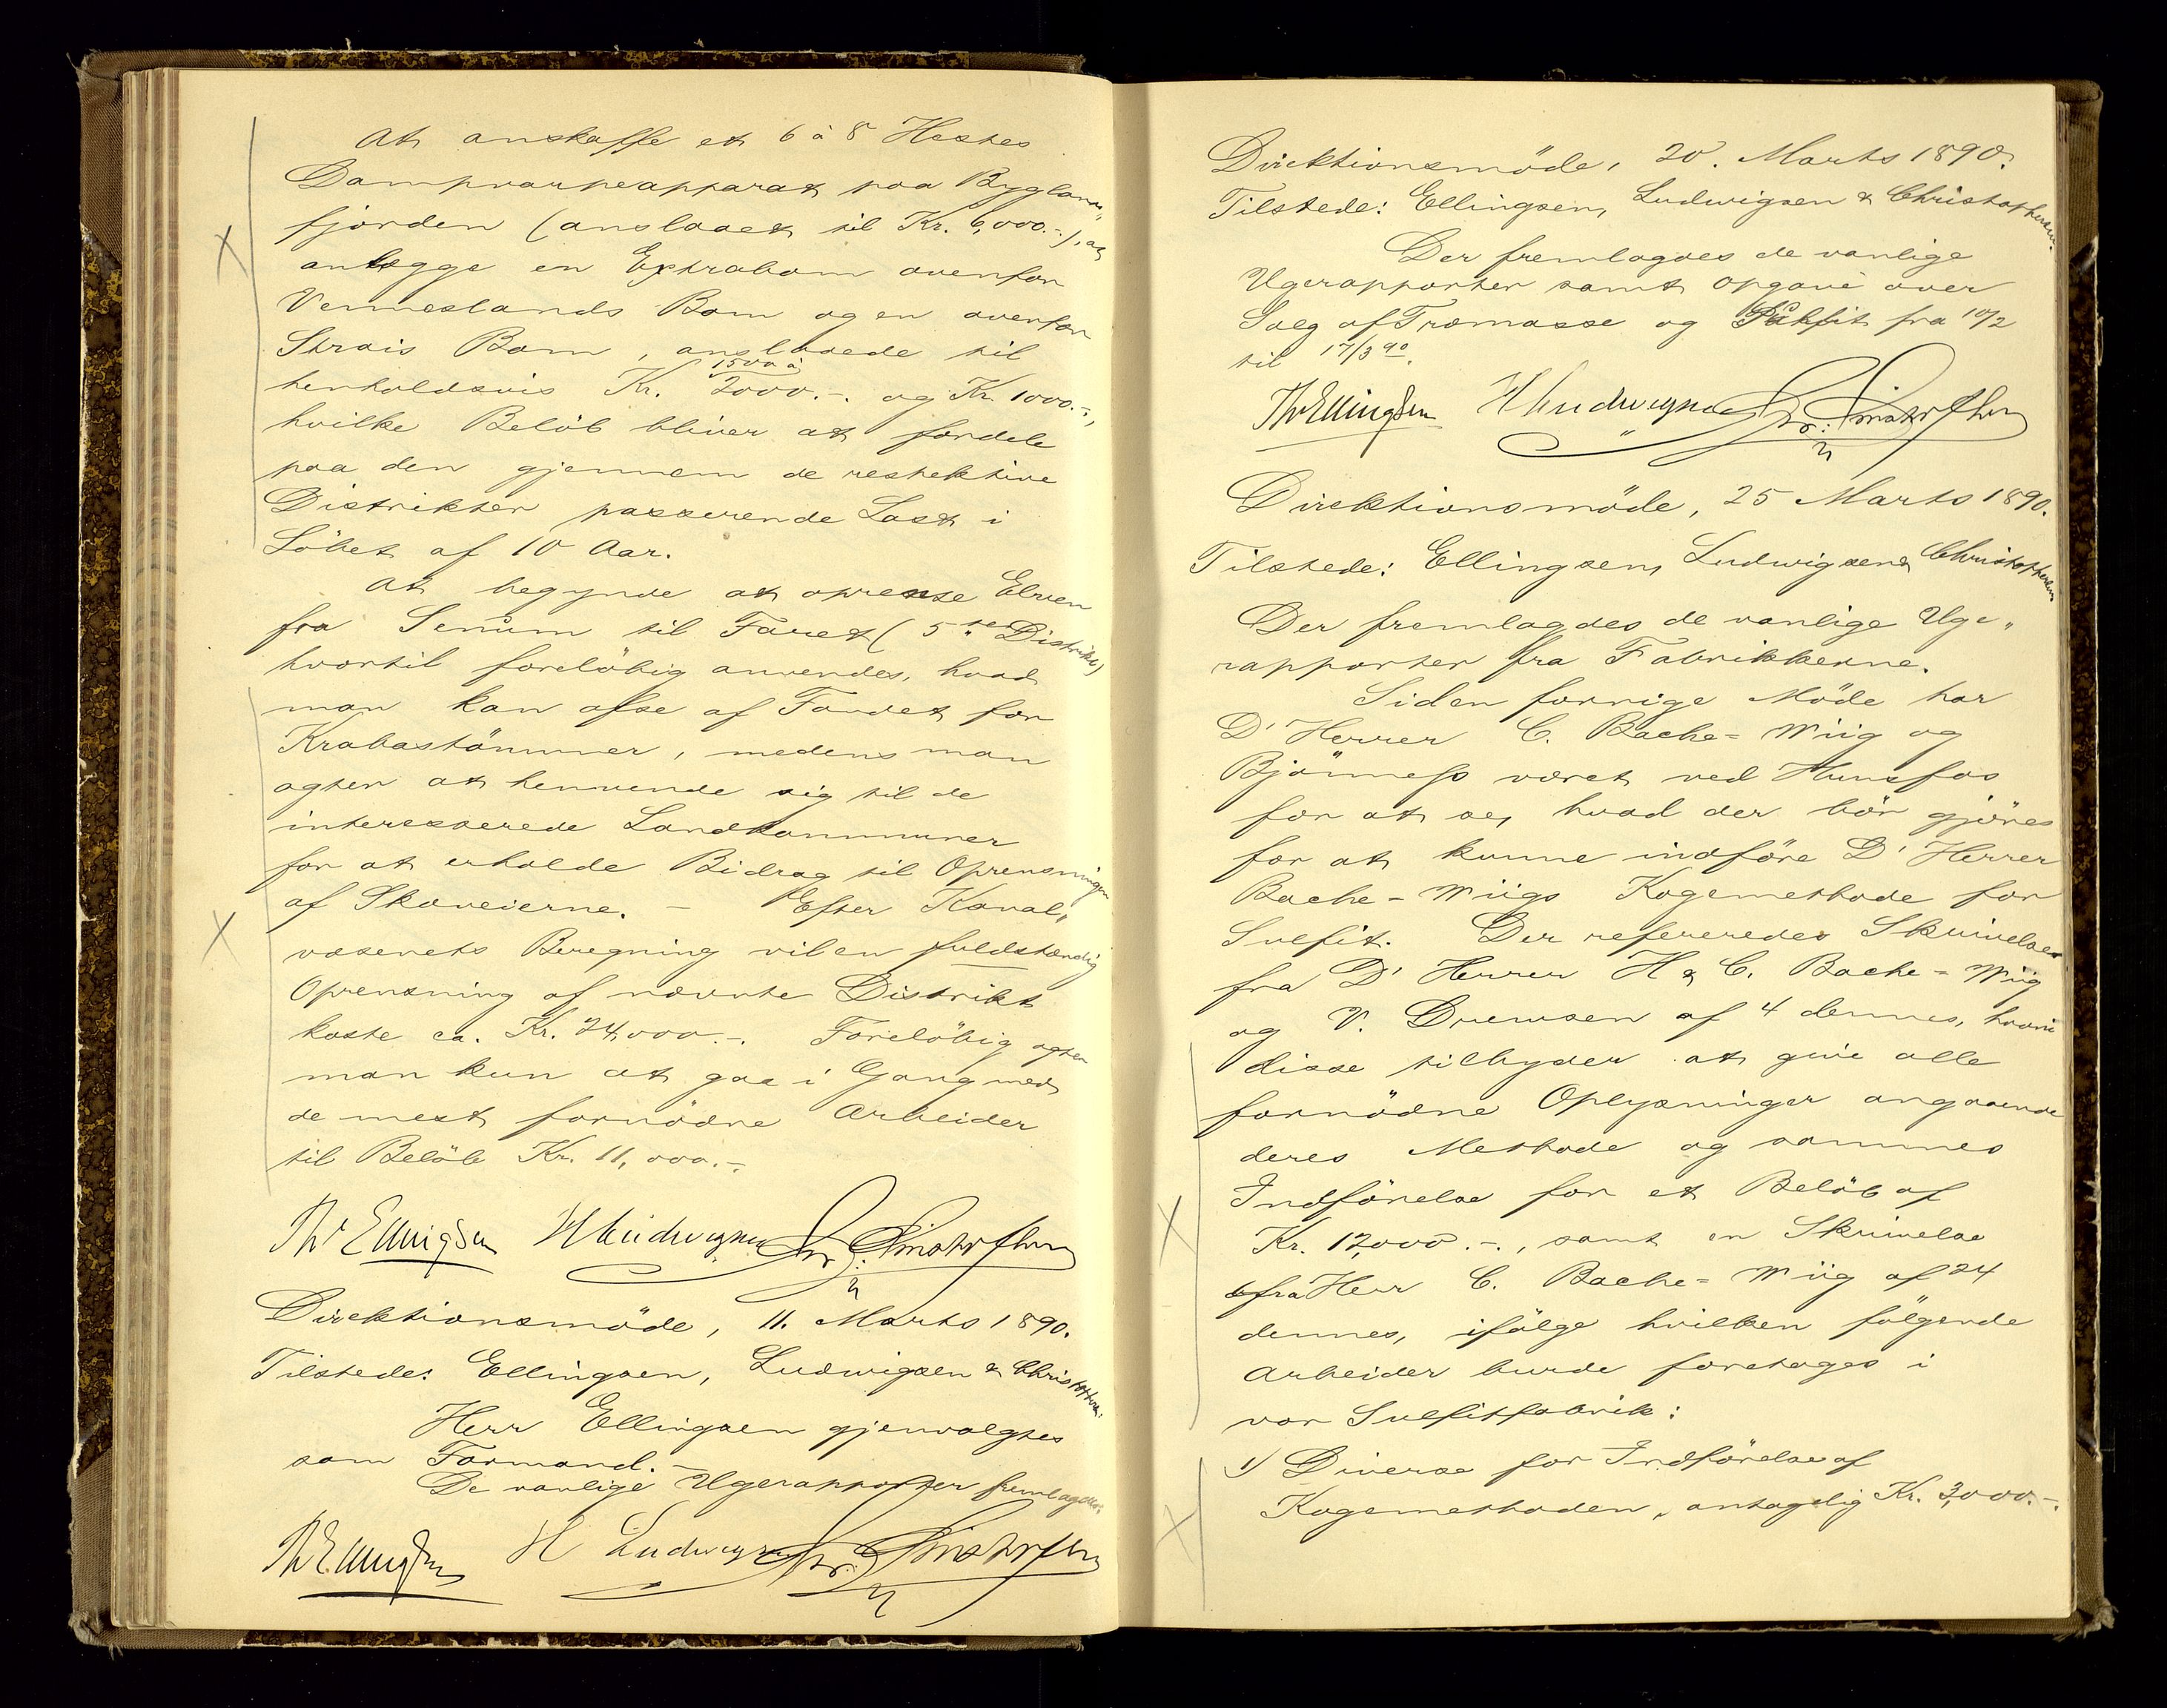 At anskaffe et 6 à 8 Hestes
Dampvarpeapparat paa Byglands„
fjorden (anslaaet til Kr. 6,000.-), at
anlægge en Extrabom ovenfor
Venneslands Bom og en ovenfor
Strais Bom, anslaaede til
henholdsvis Kr. 1500 à 2000.-. og Kr. 1000.-.,
hvilke Belöb bliver at fordele
paa den gjennem de respektive
Distrikter passerende Last i
Löbet af 10 Aar.
At begynde at oprense Elven
fra Senum til Faret (5te Distrikt)
hvortil forelöbig anvendes, hvad
man kan afse af Fondet for
Krabastömmer, medens man
agter at henvende sig til de
interesserede Landkommuner
for at erholde Bidrag til Oprensningen
af Skoveierne. – Efter Kanal„
væsenets Beregning vil en fuldstændig
Oprensning af nævnte Distrikt
koste ca. Kr. 24,000.-. Forelöbig agter
man kun at gaa i Gang med
de mest fornödne Arbeider
til Belöb Kr. 11,000.-.
Th Ellingsen H Ludwigsen Chr. Christophersen
Direktionsmöde, 11. Marts 1890.
Tilstede: Ellingsen, Ludwigsen & Christophersen.
Herr Ellingsen gjenvalgtes
som Formand. –
De vanlige Ugerapporter fremlagdes.
Th Ellingsen H Ludwigsen Chr. Christophersen
Direktionsmöde, 20. Marts 1890.
Tilstede: Ellingsen, Ludwigsen & Christophersen.
Der fremlagdes de vanlige
Ugerapporter samt Opgave over
Salg af Træmasse og Sulfit fra 10/2
til 17/3 90.
Th Ellingsen H Ludwigsen Chr. Christophersen
Direktionsmöde, 25 Marts 1890.
Tilstede: Ellingsen, Ludwigsen & Christophersen
Der fremlagdes de vanlige Uge„
rapporter fra Fabrikkerne.
Siden forrige Möde har
D' Herrer C. Bache-Wiig og
Bjönness været ved Hunsfos
for at se, hvad der bör gjöres
for at kunne indföre D' Herrer
Bache-Wiigs Kogemethode for
Sulfit. Der refereredes Skrivelser
fra D' Herrer H & C. Bache-Wiig
og V. Drewsen af 4 dennes, hvori
disse tilbyder at give alle
fornödne Oplysninger angaaende
deres Methode og sammes
Indförelse for et Belöb af
Kr. 12,000.-., samt en Skrivelse
fra Herr C. Bache-Wiig af 24
dennes, ifölge hvilken fölgende
Arbeider burde foretages i
vor Sulfitfabrik:
1) Diverse for Indförelse af
Kogemethoden, antagelig Kr. 3,000.-.